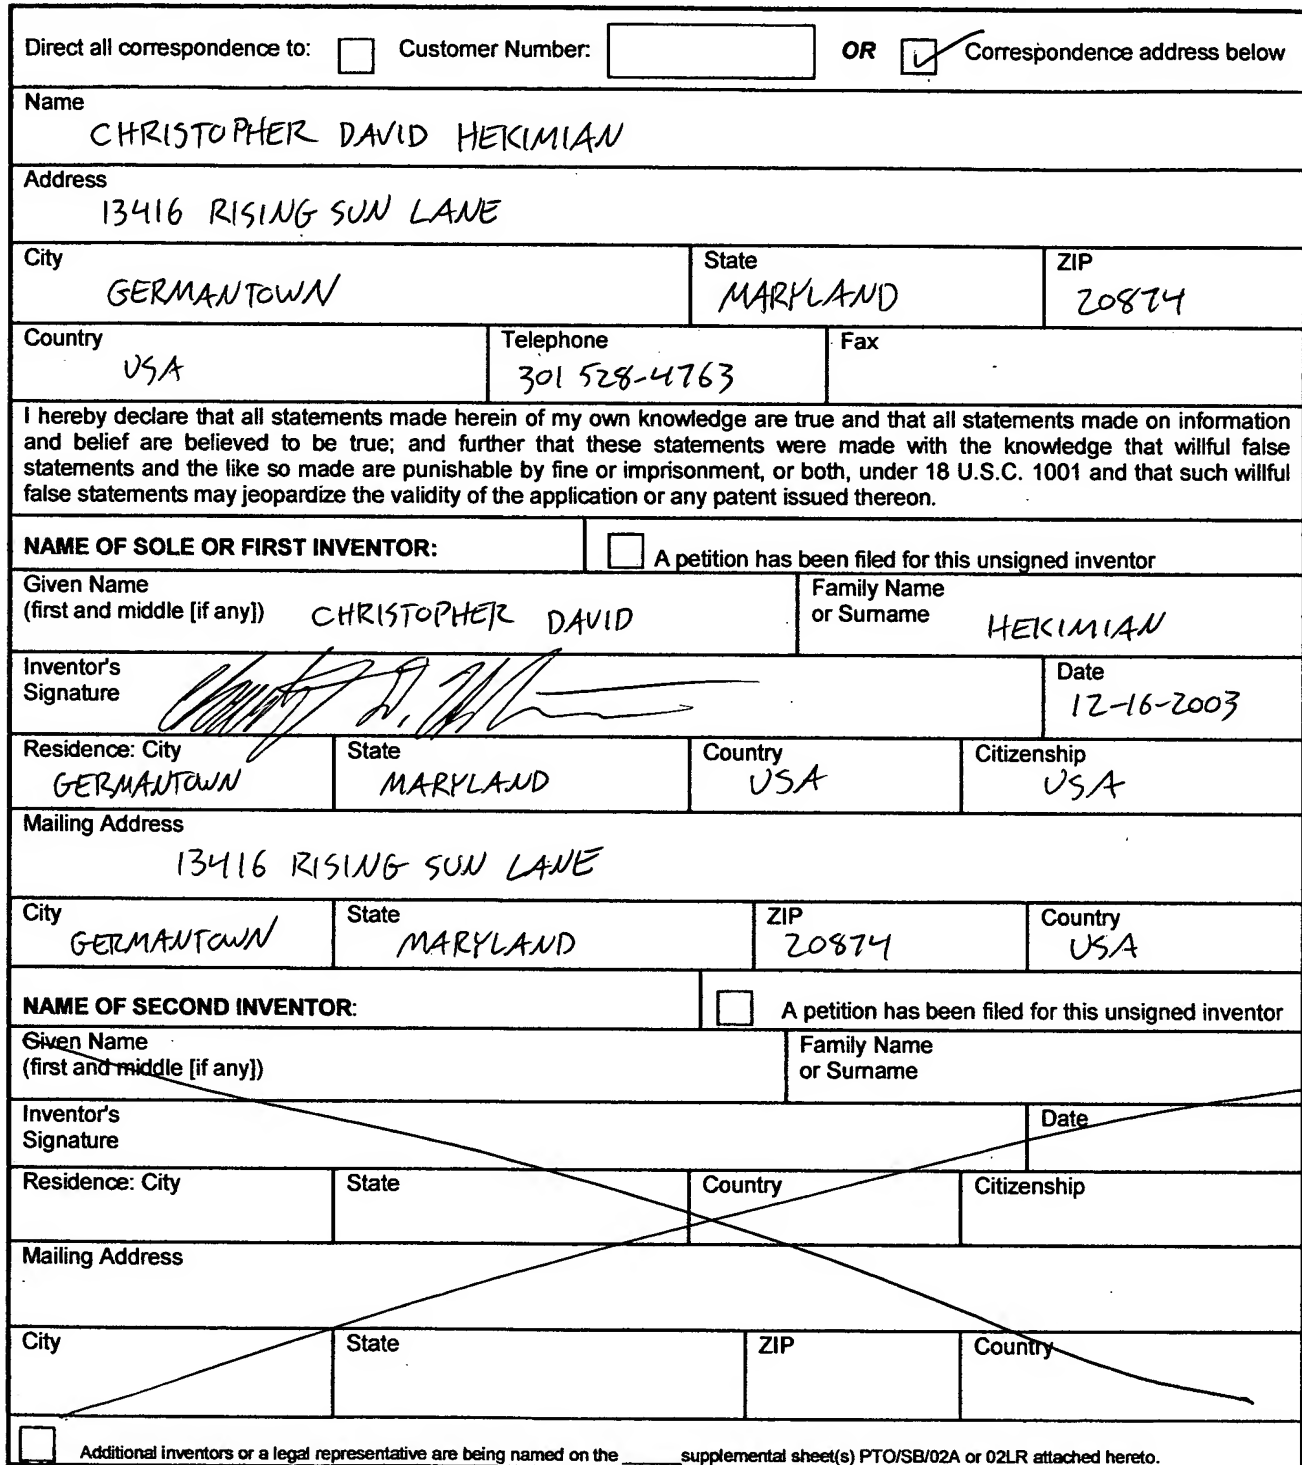 Direct all correspondence to: Customer Number: OR Correspondence address below
Name
CHRISTOPHER DAVID HEKIMIAN
Address
13416 RISING SUN LANE
City State ZIP
GERMANTOWN MARYLAND 20874
Country Telephone Fax
USA 301 528-4763
I hereby declare that all statements made herein of my own knowledge are true and that all statements made on information
and belief are believed to be true; and further that these statements were made with the knowledge that willful false
statements and the like so made are punishable by fine or imprisonment, or both, under 18 U.S.C. 1001 and that such willful
false statements may jeopardize the validity of the application or any patent issued thereon.
NAME OF SOLE OR FIRST INVENTOR: A petition has been filed for this unsigned inventor
Given Name Family Name
(first and middle [if any]) CHRISTOPHER DAVID or Surname HEKIMIAN
Inventor's Date
Signature 12-16-2003
Residence: City State Country Citizenship
GERMANTOWN MARYLAND USA USA
Mailing Address
13416 RISING SUN LANE
City State ZIP Country
GERMANTOWN MARYLAND 20874 USA
NAME OF SECOND INVENTOR: A petition has been filed for this unsigned inventor
Given Name Family Name
(first and middle [if any]) or Surname
Inventor's Date
Signature
Residence: City State Country Citizenship
Mailing Address
City State ZIP Country
Additional inventors or a legal representative are being named on the ______supplemental sheet(s) PTO/SB/02A or 02LR attached hereto.